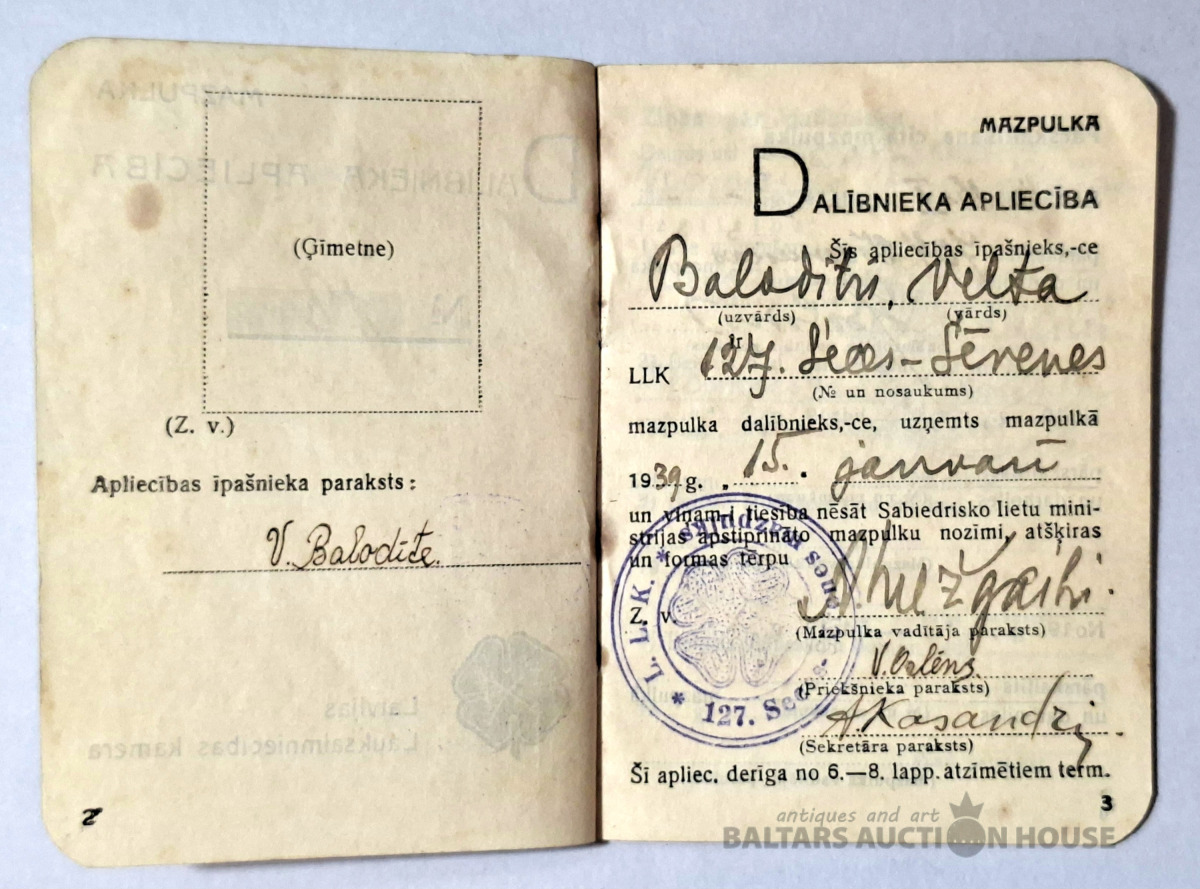 (Ģīmetne)
(Z. v.)
Apliecības īpašnieka paraksts:
V. Balodīte.
2
MAZPULKA
DALĪBNIEKA APLIECĪBA
Šīs apliecības īpašnieks,-ce
Velta
(uzvārds) (vārds)
ir
LLK 127. Sēces-Sērenes
(№ un nosaukums)
mazpulka dalībnieks,-ce, uzņemts mazpulkā
1939 g. „15.
un viņam-i tiesība nēsāt Sabiedrisko lietu mini-
strijas apstiprināto mazpulku nozīmi, atšķiras
un formas tērpu
Z. v.
(Mazpulka vadītāja paraksts)
(Priekšnieka paraksts)
(Sekretāra paraksts)
* L. L. K. *
127.
Šī apliec. derīga no 6.—8. lapp. atzīmētiem term.
3
antiques and art
BALTARS AUCTION HOUSE